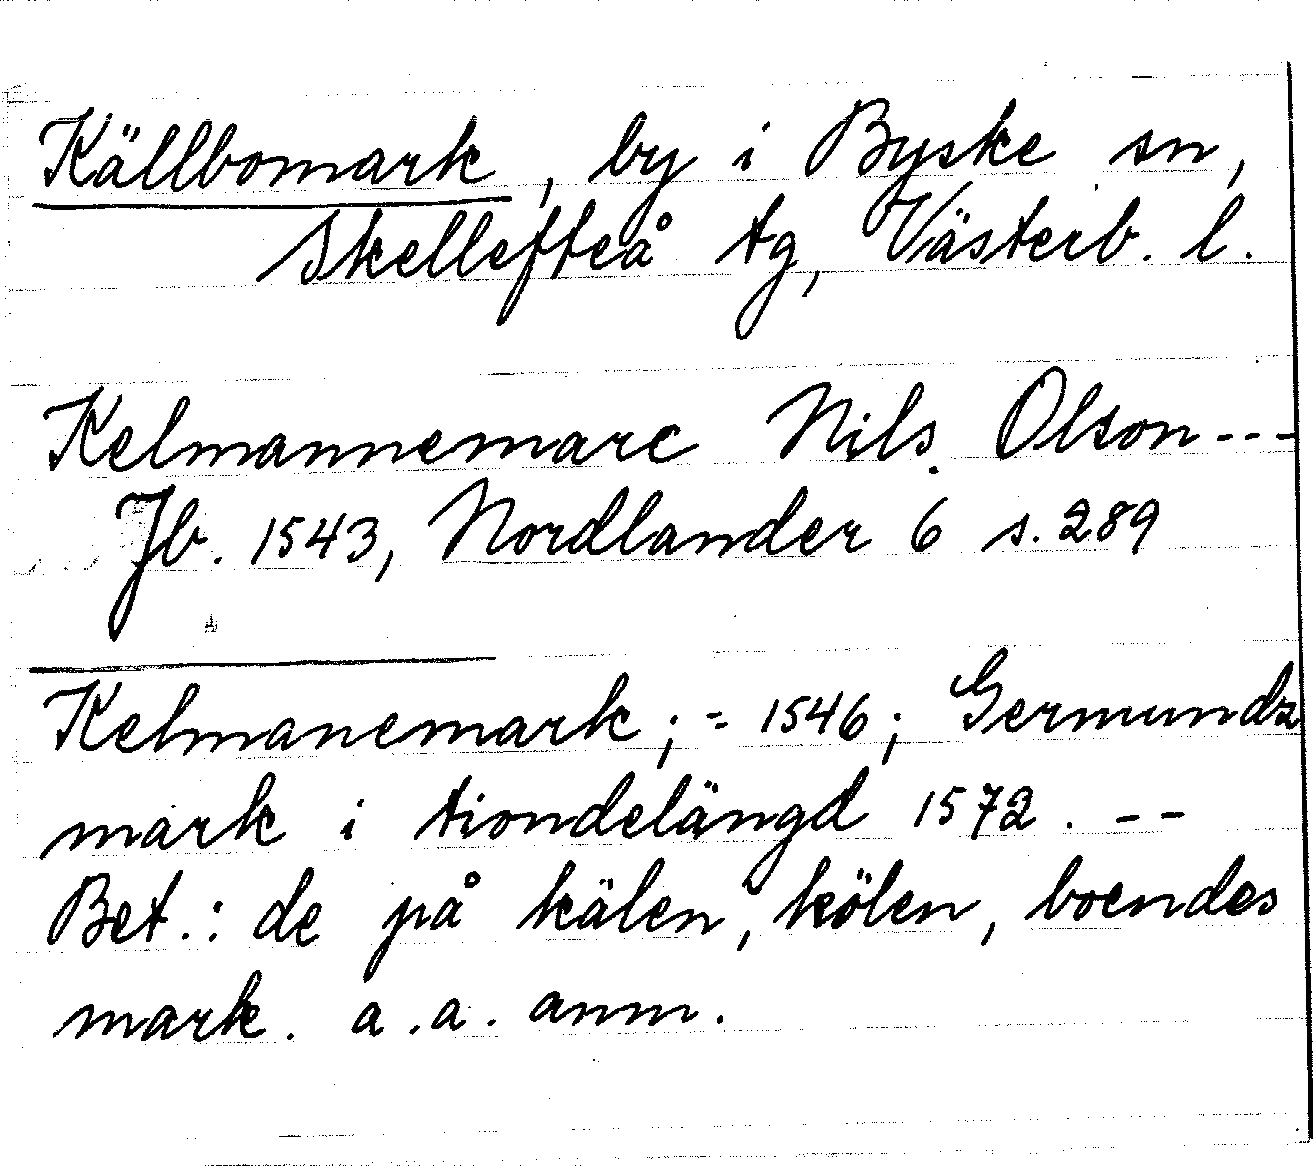 Källbomark, by i Byske sn,
Skellefteå tg, Västerb. l.
Kelmannemarc Nils Olson---
Jb. 1543, Nordlander 6 s. 289
Kelmanemark; -- 1546; Germundz
mark i tiondelängd 1572. --
Bet.: de på kälen, kölen, boendes
mark. a.a. anm.